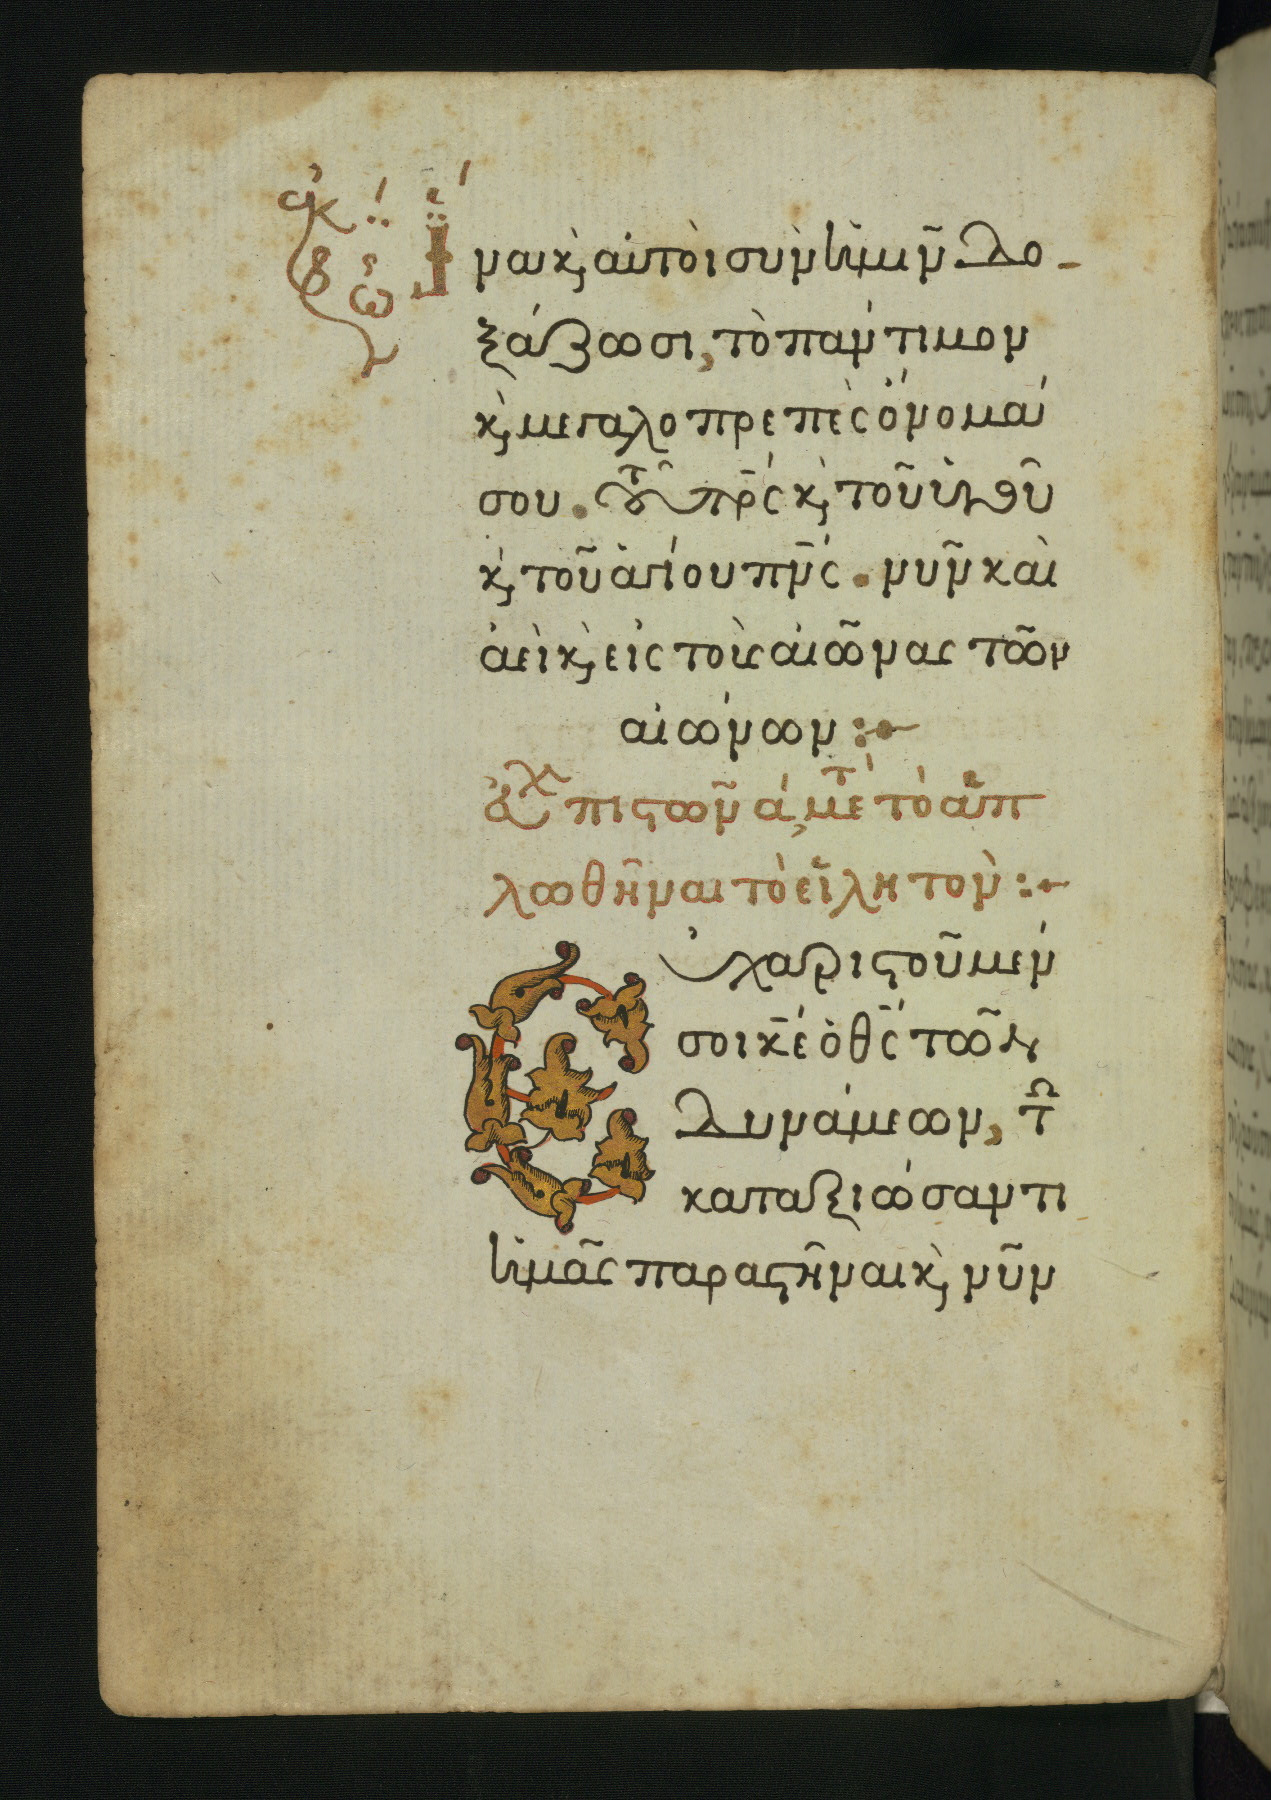 ἐκφώ
Ἵνα κ, αὐτοὶ σὺν ἡμῖν δο-
ξάζωσι, τὸ πάντιμον
κ, μεγαλοπρεπὲς ὄνομά
σου. τοῦ πρς κ, τοῦ υἱοῦ
κ, τοῦ ἁγίου πνς. νῦν καὶ
ἀεὶ κ, εἰς τοὺς αἰῶνας τῶν
αἰώνων:
εὐχ πιστῶν ά, μετ τὸ ἁπ
λωθῆναι τὸ εἰλητὸν:
Εὐχαριστοῦμέν
σοι κε ὁ θς τῶν
δυνάμεων, τῶ
καταξιώσαντι
ἡμᾶς παραστῆναι κ, νῦν